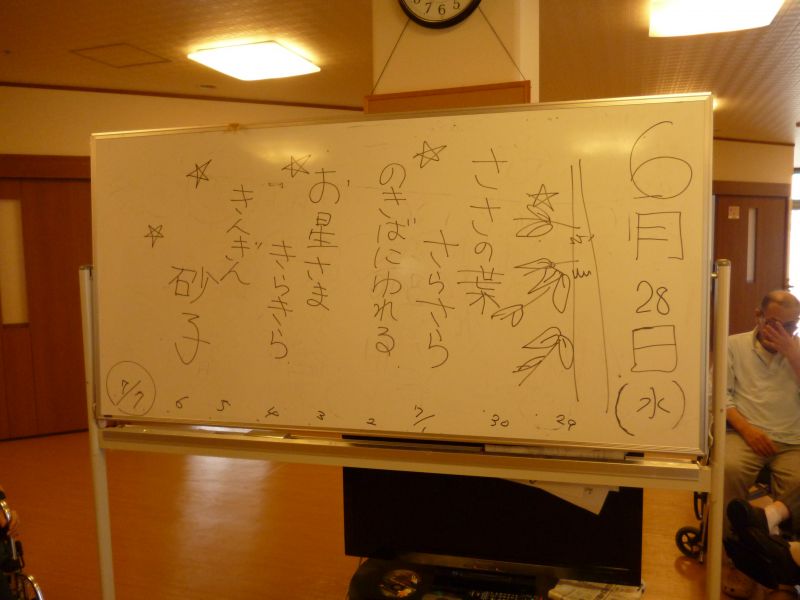 6月28日(水)
ささの葉
さらさら
のきばにゆれる
お星さま
きらきら
きんぎん
砂子
29 30 7/1 2 3 4 5 6 7/7